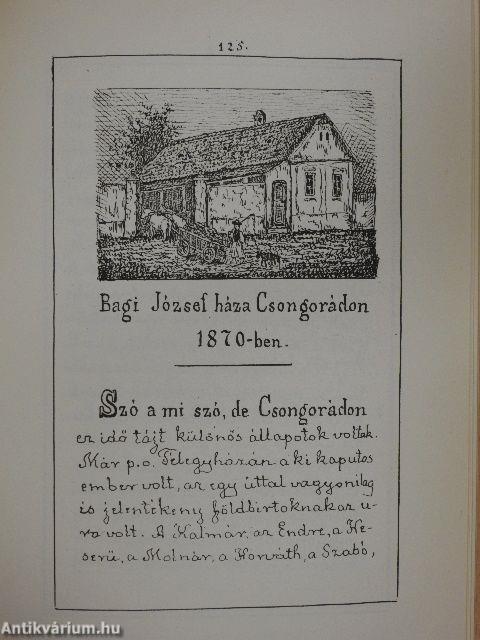 125.
Bagi József háza Csongorádon
1870-ben.
Szó a mi szó, de Csongorádon
ez idő tájt különős állapotok voltak.
Már p.o. Félegyházán a ki kaputos
ember volt, az egy úttal vagyonilag
is jelentékeny földbirtoknakaz u-
ra volt. A Kalmár, az Endre, a Ke-
serü, a Molnár, a Horváth, a Szabó,
Antikvárium.hu